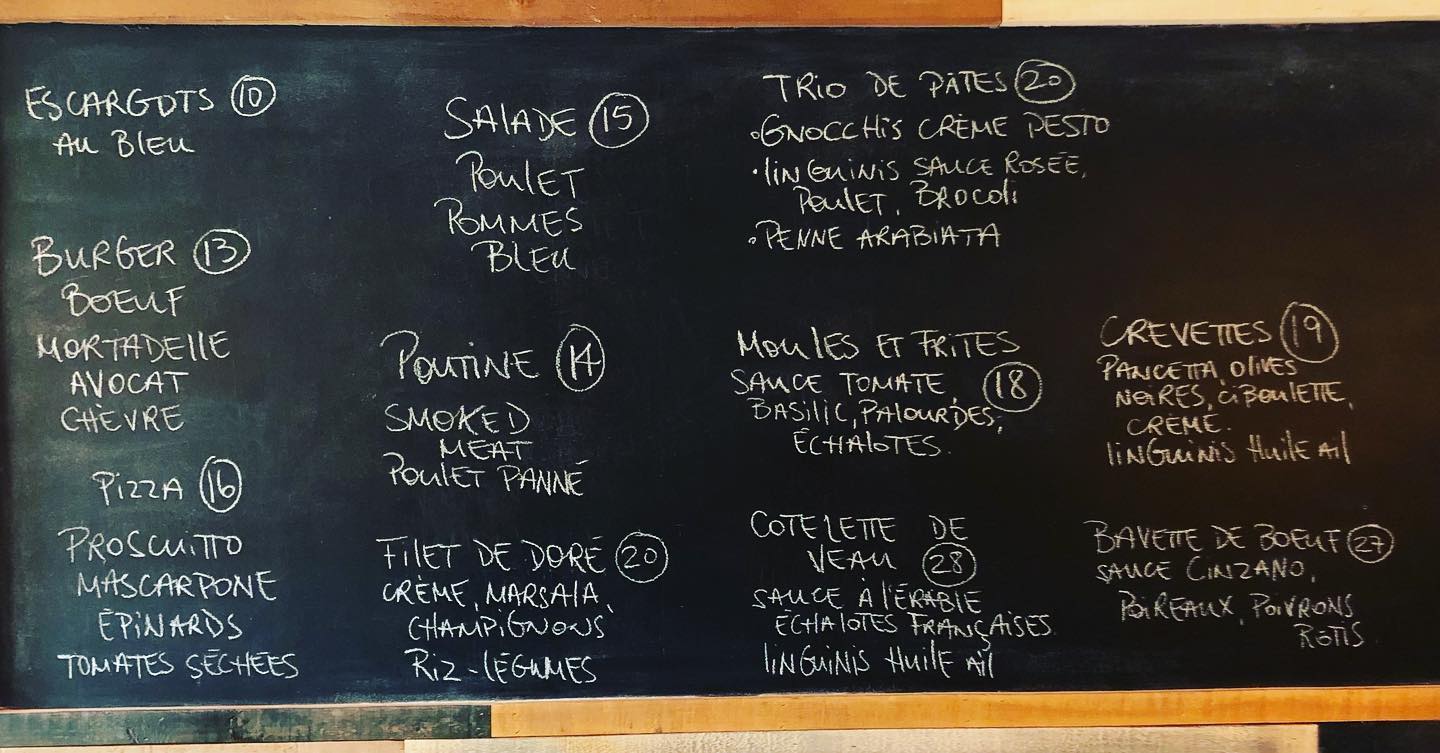 ESCARGOTS 10
AU BLEU
BURGER 13
BOEUF
MORTADELLE
AVOCAT
CHÈVRE
PIZZA 16
PROSCUITTO
MASCARPONE
ÉPINARDS
TOMATES SÉCHÉES
SALADE 15
POULET
POMMES
BLEU
POUTINE 14
SMOKED
MEAT
POULET PANNÉ
FILET DE DORÉ 20
CRÈME, MARSALA,
CHAMPIGNONS
RIZ-LÉGUMES
TRIO DE PÂTES 20
•GNOCCHIS CRÈME PESTO
•LINGUINIS SAUCE ROSÉE,
POULET, BROCOLI
•PENNE ARABIATA
MOULES ET FRITES
SAUCE TOMATE, 18
BASILIC, PALOURDES,
ÉCHALOTES.
COTELETTE DE
VEAU 28
SAUCE À L'ÉRABLE
ÉCHALOTES FRANÇAISES
LINGUINIS HUILE AIL
CREVETTES 19
PANCETTA, OLIVES
NOIRES, CIBOULETTE,
CRÈME.
LINGUINIS HUILE AIL
BAVETTE DE BOEUF 27
SAUCE CINZANO,
POIREAUX, POIVRONS
ROTIS